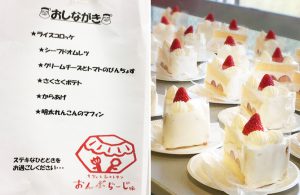 おしながき
★ライスコロッケ
★シーフードオムレツ
★クリームチーズとトマトのぴんちょす
★さくさくポテト
★からあげ
★明太れんこんのマフィン
おんぶらーじゅ
ステキなひとときを
お過ごしください…